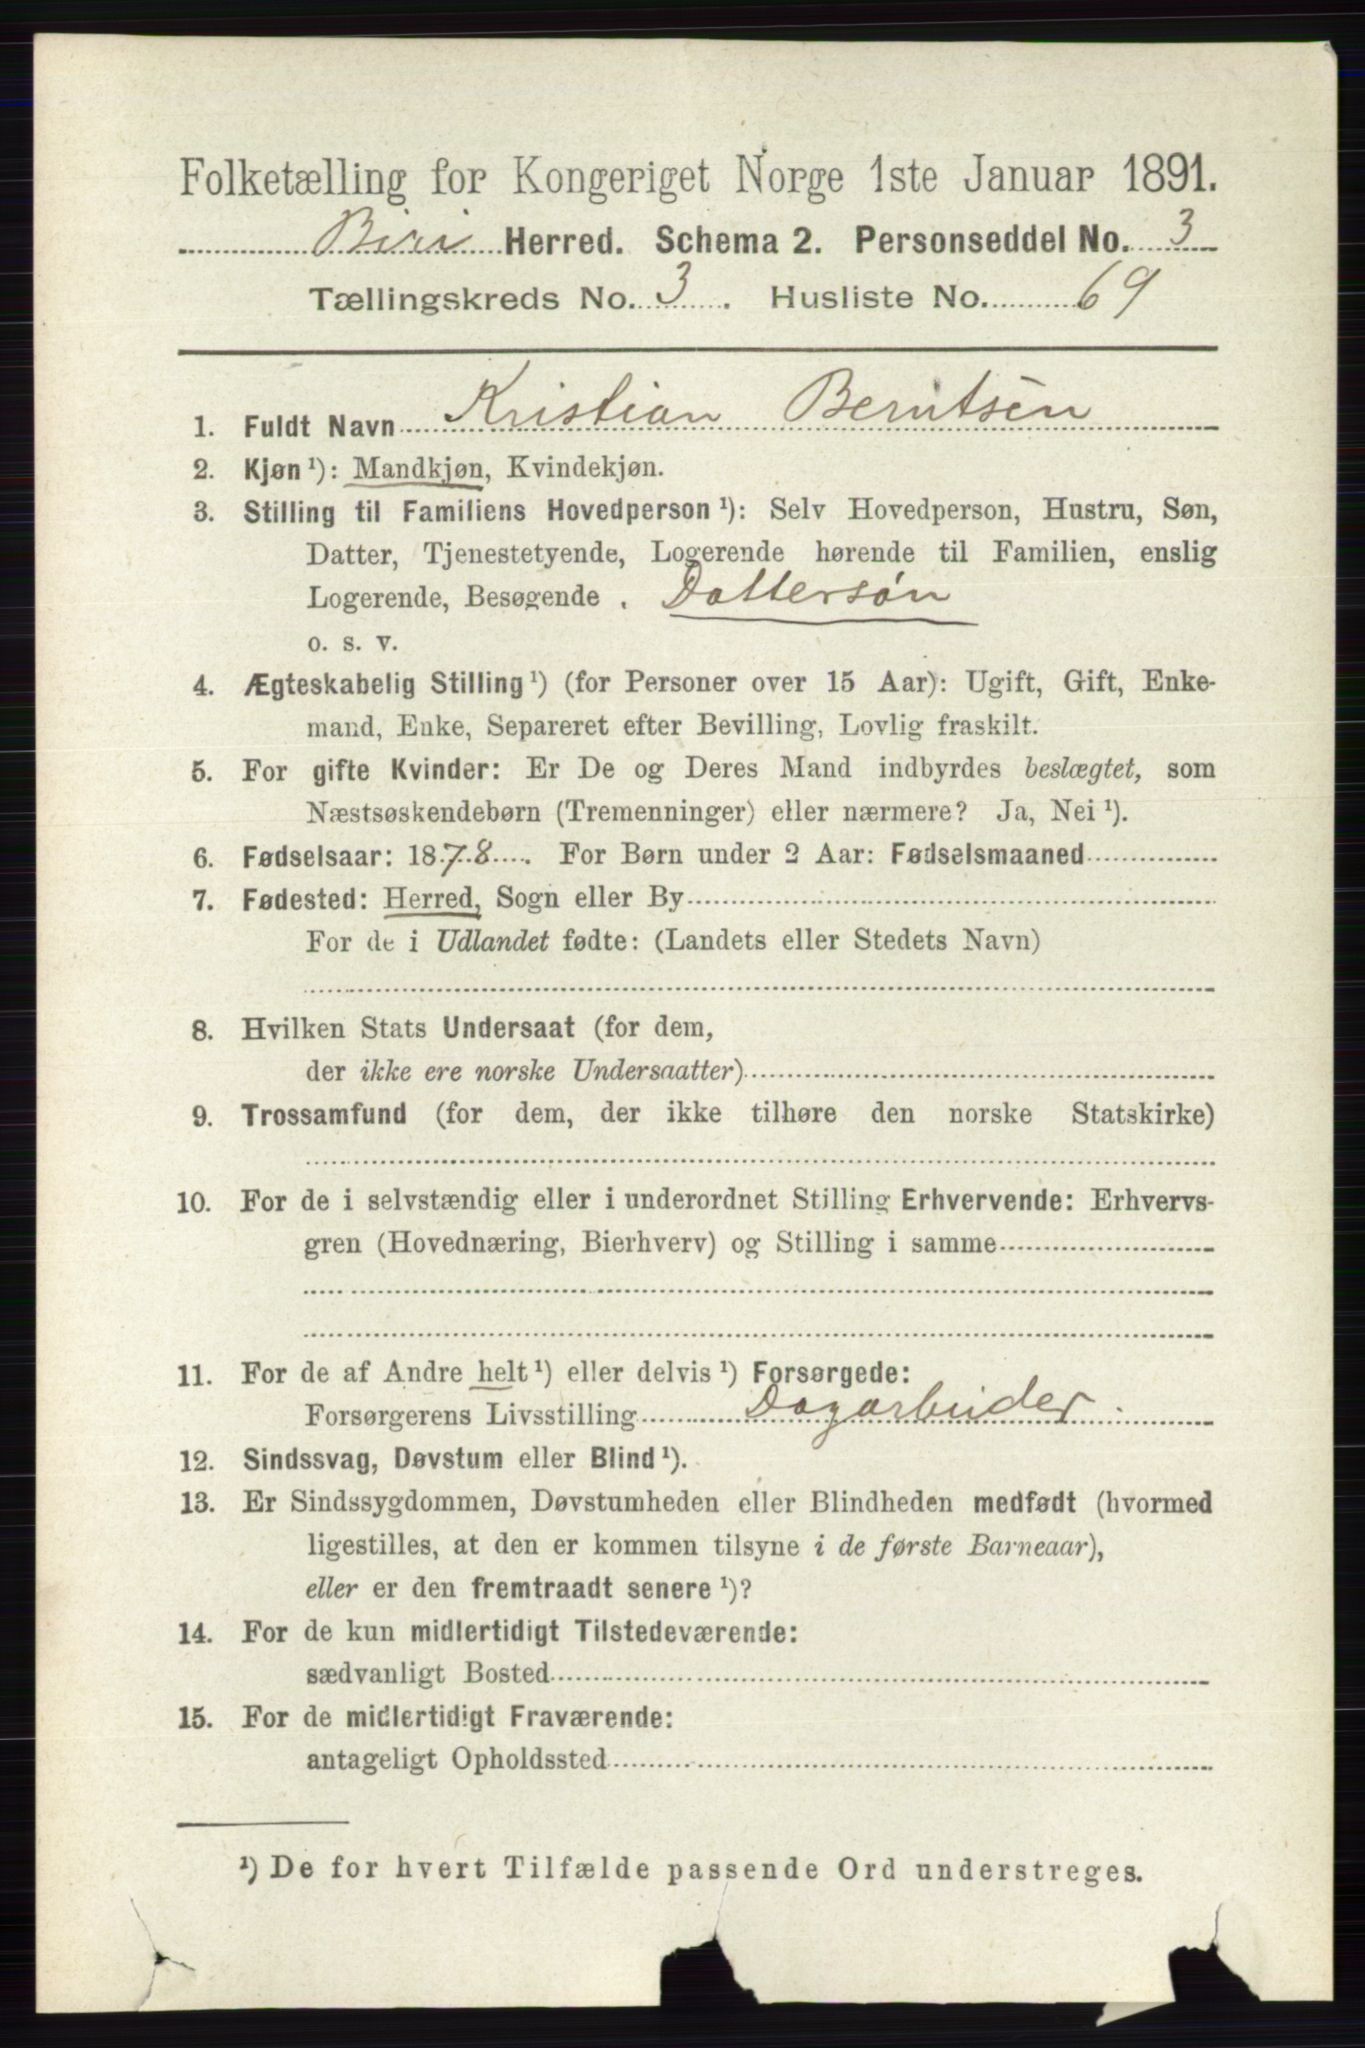 Folketælling for Kongeriget Norge 1ste Januar 1891.
Biri Herred. Schema 2. Personseddel No. 3
Tællingskreds No. 3. Husliste No. 69
1. Fuldt Navn Kristian Berntsen
2. Kjøn ¹): Mandkjøn, Kvindekjøn.
3. Stilling til Familiens Hovedperson ¹): Selv Hovedperson, Hustru, Søn,
Datter, Tjenestetyende, Logerende hørende til Familien, enslig
Logerende, Besøgende . Dattersøn
o. s. v.
4. Ægteskabelig Stilling ¹) (for Personer over 15 Aar): Ugift, Gift, Enke-
mand, Enke, Separeret efter Bevilling, Lovlig fraskilt.
5. For gifte Kvinder: Er De og Deres Mand indbyrdes beslægtet, som
Næstsøskendebørn (Tremenninger) eller nærmere? Ja, Nei ¹).
6. Fødselsaar: 1878. For Børn under 2 Aar: Fødselsmaaned
7. Fødested: Herred, Sogn eller By
For de i Udlandet fødte: (Landets eller Stedets Navn)
8. Hvilken Stats Undersaat (for dem,
der ikke ere norske Undersaatter)
9. Trossamfund (for dem, der ikke tilhøre den norske Statskirke)
10. For de i selvstændig eller i underordnet Stilling Erhvervende: Erhvervs-
gren (Hovednæring, Bierhverv) og Stilling i samme
11. For de af Andre helt ¹) eller delvis ¹) Forsørgede:
Forsørgerens Livsstilling Dagarbeider.
12. Sindssvag, Døvstum eller Blind ¹).
13. Er Sindssygdommen, Døvstumheden eller Blindheden medfødt (hvormed
ligestilles, at den er kommen tilsyne i de første Barneaar),
eller er den fremtraadt senere ¹)?
14. For de kun midlertidigt Tilstedeværende:
sædvanligt Bosted
15. For de midlertidigt Fraværende:
antageligt Opholdssted
¹) De for hvert Tilfælde passende Ord understreges.